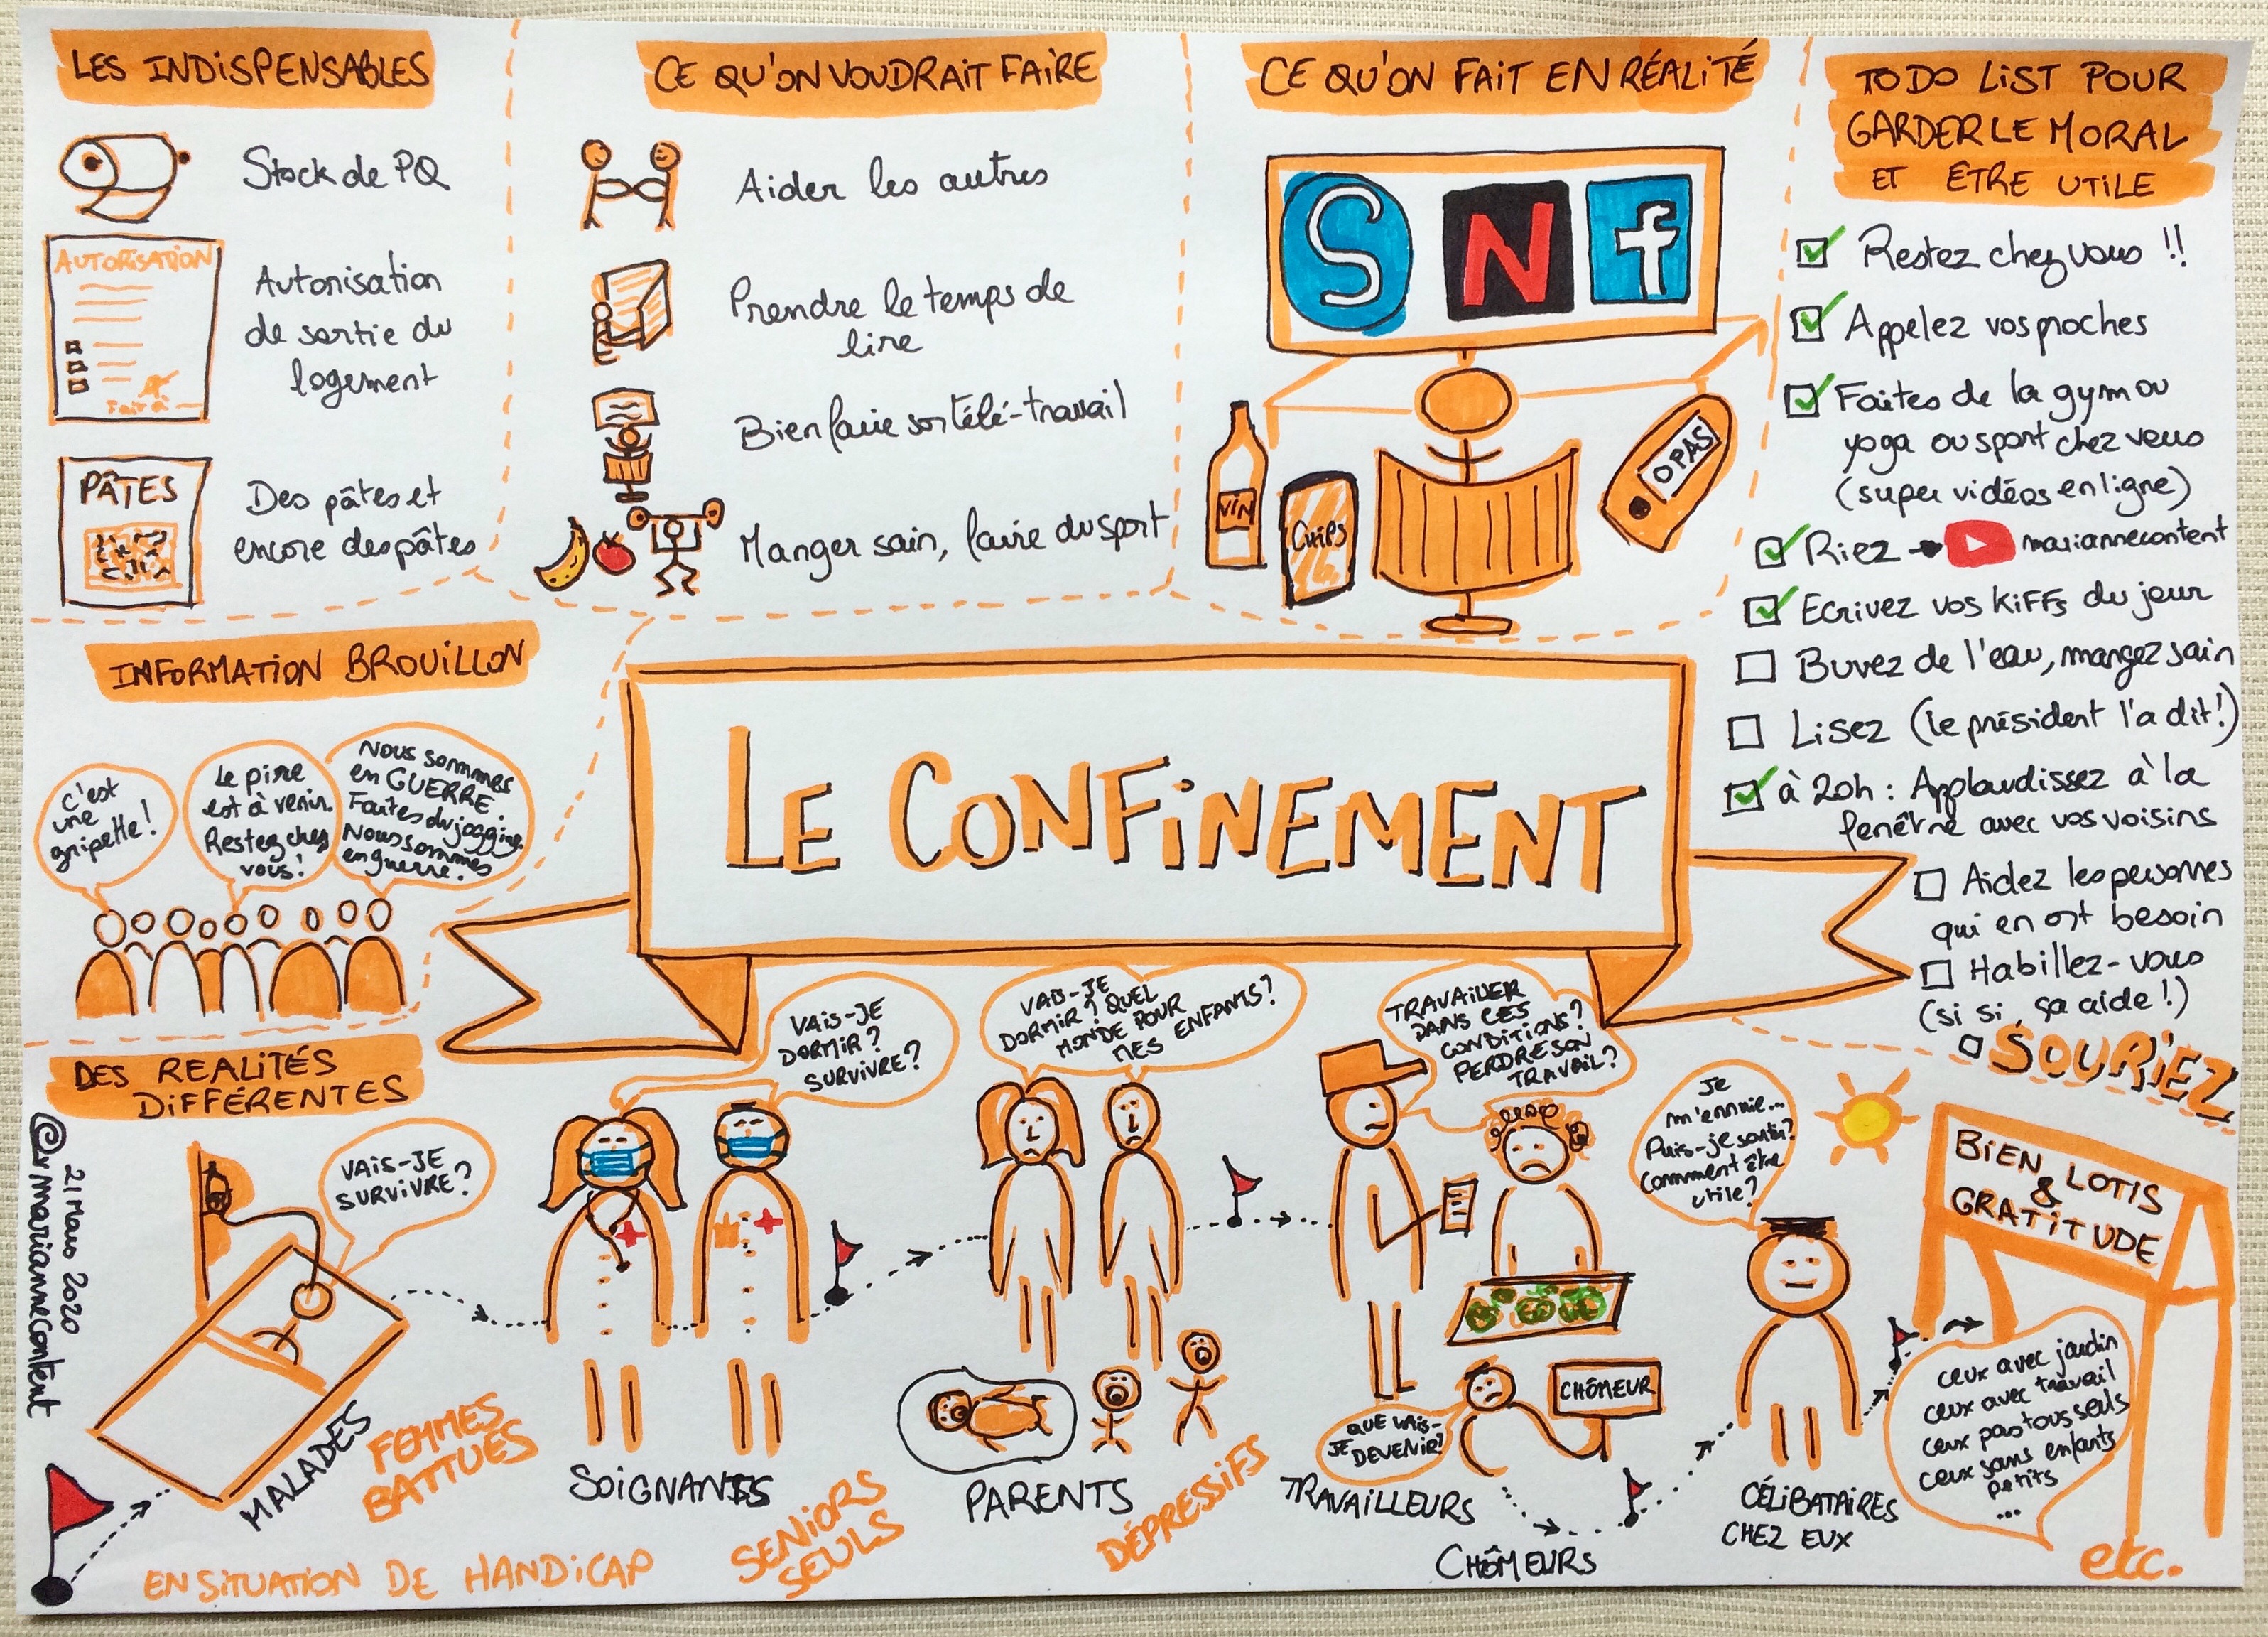 LES INDISPENSABLES
Stock de PQ
AUTORISATION
Fait à
Autorisation
de sortie du
logement
PÂTES
Des pâtes et
encore des pâtes
CE QU'ON VOUDRAIT FAIRE
Aider les autres
Prendre le temps de
lire
Bien faire son télé-travail
Manger sain, faire du sport
CE QU'ON FAIT EN RÉALITÉ
S N f
VIN
CHIPS
OPAS
TO DO LIST POUR
GARDER LE MORAL
ET ETRE UTILE
Restez chez vous !!
Appelez vos proches
Faites de la gym ou
yoga ou sport chez vous
(super vidéos en ligne)
Riez → mariannecontent
Ecrivez vos KiFFs du jour
Buvez de l'eau, mangez sain
Lisez (le président l'a dit!)
à 20h : Applaudissez à la
fenêtre avec vos voisins
Aidez les personnes
qui en ont besoin
Habillez-vous
(si si, ça aide !)
SOURIEZ
INFORMATION BROUILLON
C'est
une
gripette!
Le pire
est à venir.
Restez chez
vous!
Nous sommes
en GUERRE.
Faites du jogging.
Nous sommes
en guerre!
LE CONFINEMENT
DES REALITÉS
DIFFÉRENTES
@rmariannecontent
21 Mars 2020
VAIS-JE
SURVIVRE?
MALADES
FEMMES
BATTUES
EN SITUATION DE HANDICAP
VAIS-JE
DORMIR?
SURVIVRE?
SOIGNANTS
SENIORS
SEULS
VAIS-JE
DORMIR? QUEL
MONDE POUR
MES ENFANTS?
PARENTS
DÉPRESSIFS
TRAVAILLER
DANS CES
CONDITIONS?
PERDRE SON
TRAVAIL?
TRAVAILLEURS
QUE VAIS-
JE DEVENIR!
CHÔMEUR
CHÔMEURS
Je
m'ennuie...
Puis-je sortir?
Comment être
utile?
CÉLIBATAIRES
CHEZ EUX
BIEN LOTIS
&
GRATITUDE
ceux avec jardin
ceux avec travail
ceux pas tous seuls
ceux sans enfants
petits
...
etc.